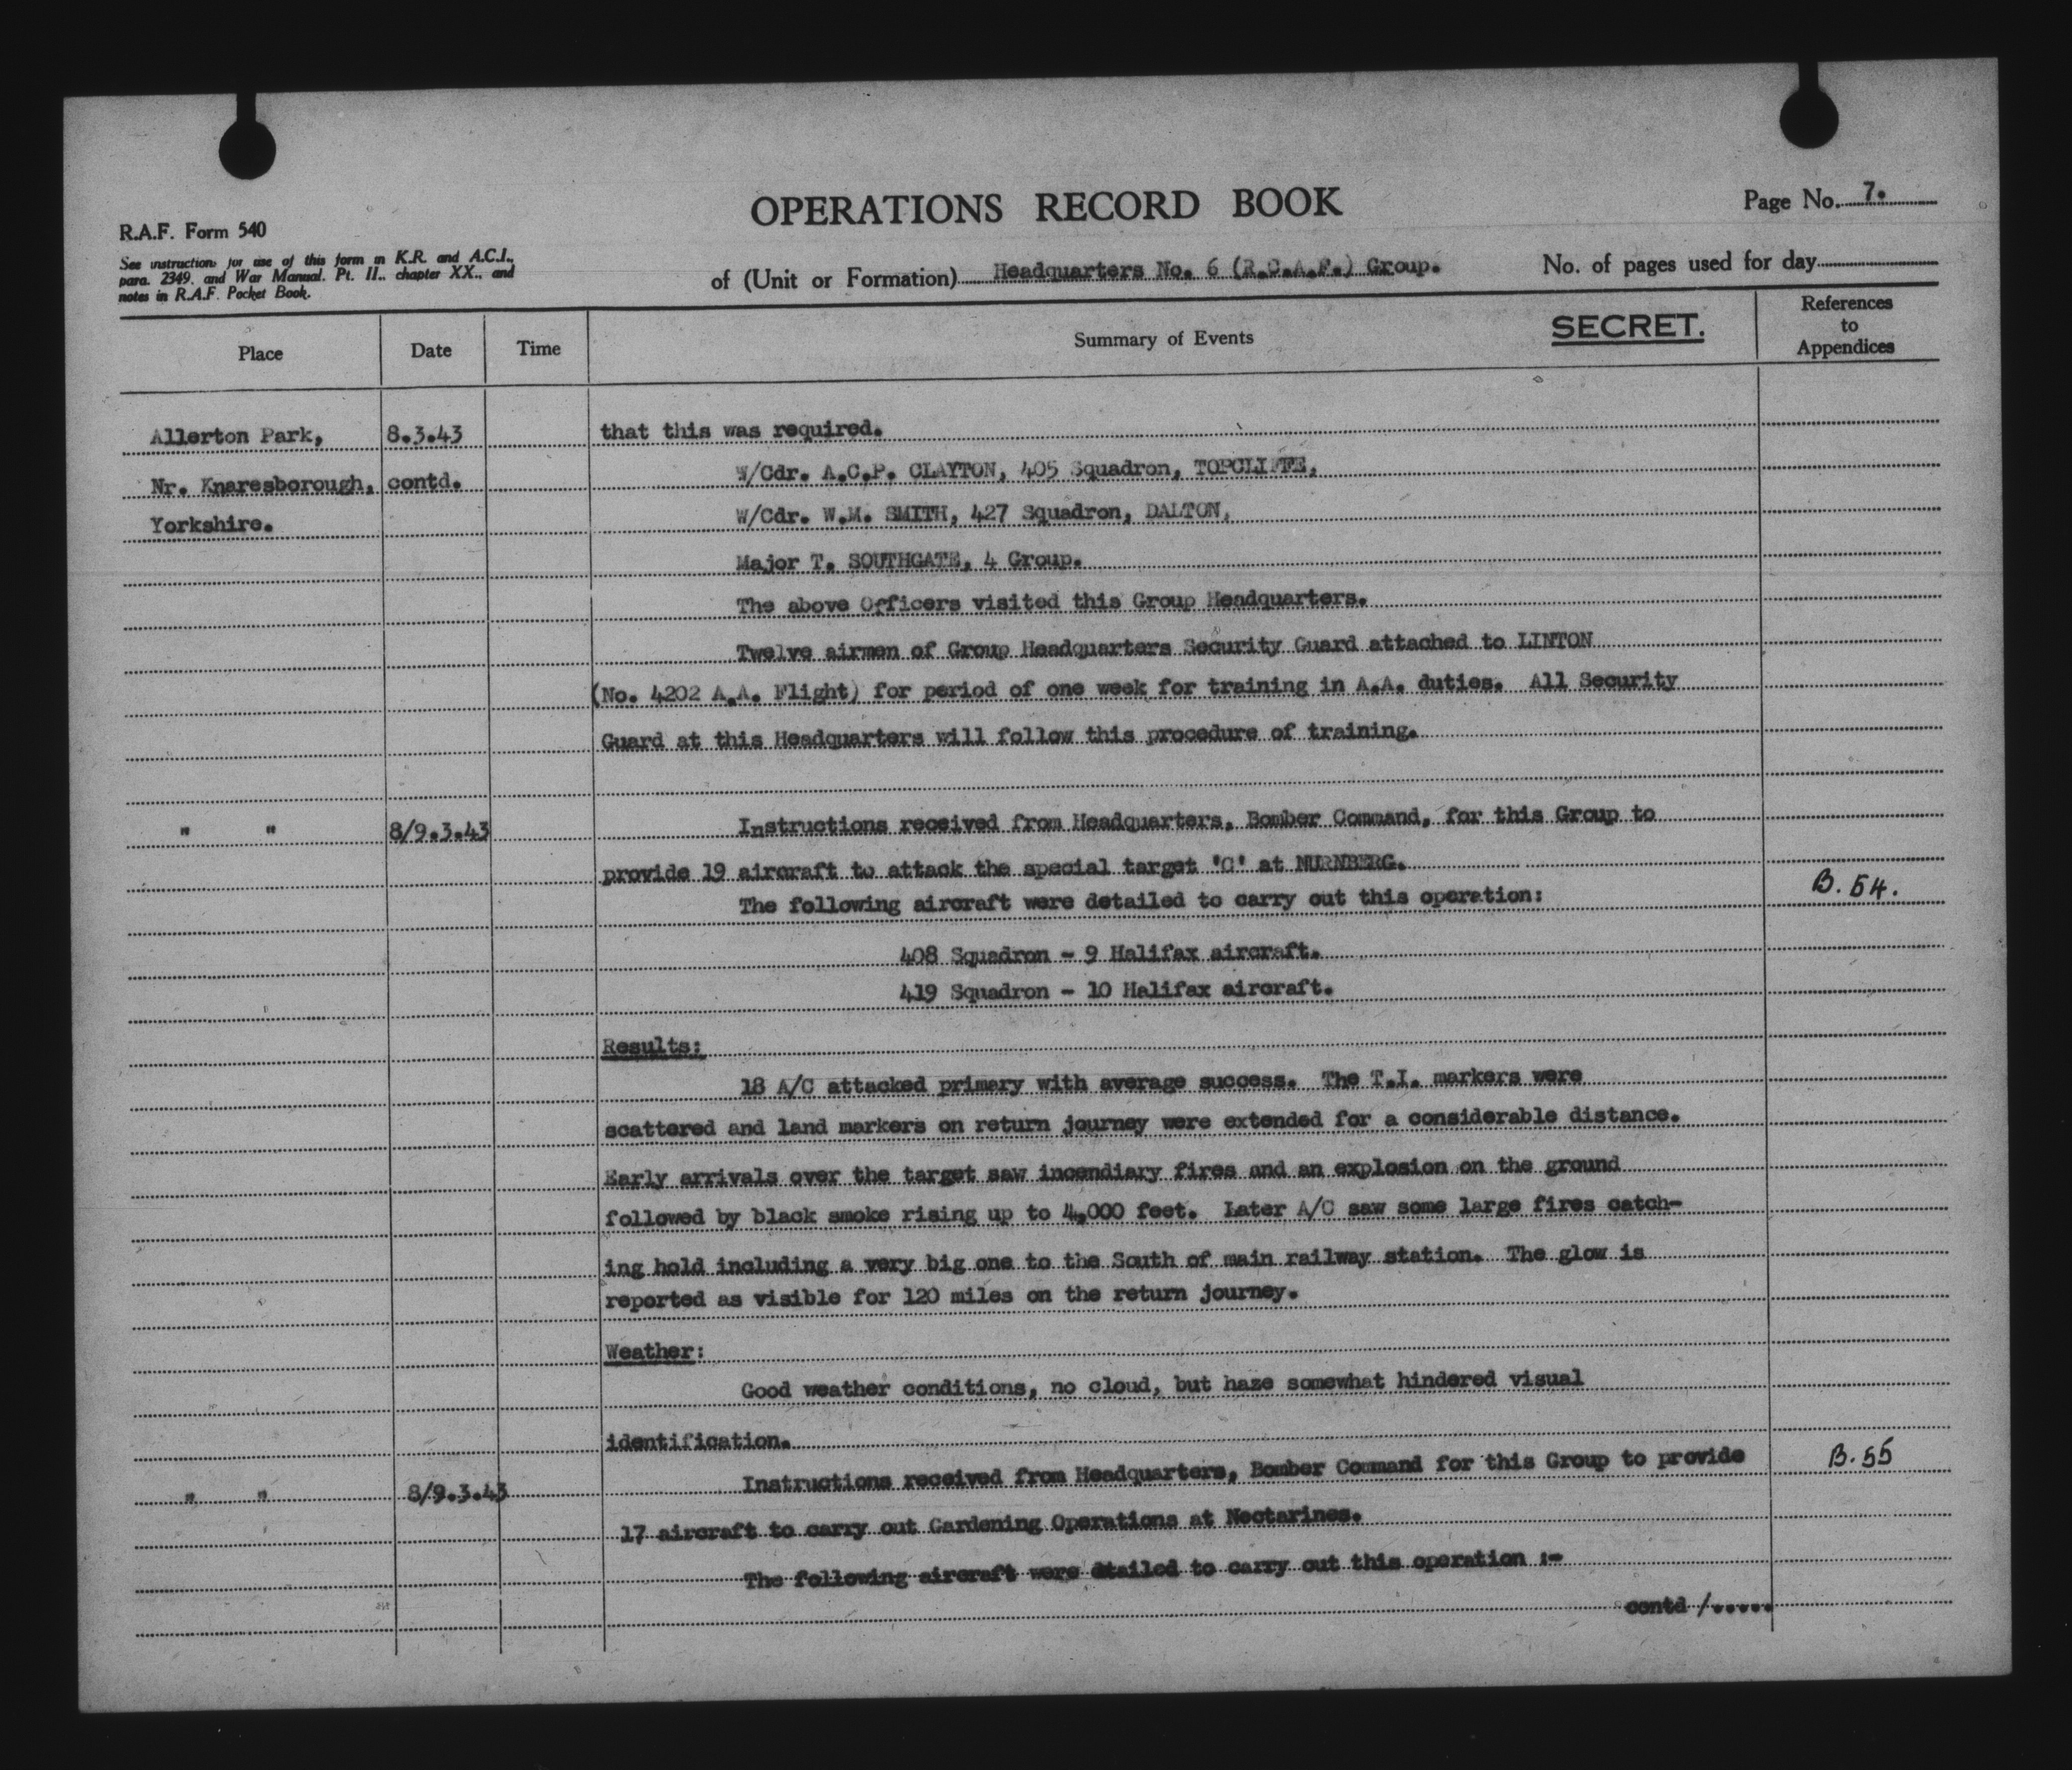 OPERATIONS RECORD BOOK
Page No. 7.
R.A.F. Form 540
See instructions for use of this form in K.R. and A.C.I.,
para. 2349, and War Manual. Pt. II., chapter XX., and
notes in R.A.F. Pocket Book.
of (Unit or Formation) Headquarters No. 6 (R.C.A.F.) Group.
No. of pages used for day
Place
Date
Time
Summary of Events
SECRET.
References
to
Appendices
Allerton Park, 8.3.43 that this was required.
Nr. Knaresborough, contd. W/Cdr. A.C.P. CLAYTON, 405 Squadron, TOPCLIFFE,
Yorkshire. W/Cdr. W.M. SMITH, 427 Squadron, DALTON,
Major T. SOUTHGATE, 4 Group.
The above Officers visited this Group Headquarters.
Twelve airmen of Group Headquarters Security Guard attached to LINTON
(No. 4202 A.A. Flight) for period of one week for training in A.A. duties. All Security
Guard at this Headquarters will follow this procedure of training.
" " 8/9.3.43 Instructions received from Headquarters, Bomber Command, for this Group to
provide 19 aircraft to attack the special target 'C' at NURNBERG.
B.54.
The following aircraft were detailed to carry out this operation:
408 Squadron - 9 Halifax aircraft.
419 Squadron - 10 Halifax aircraft.
Results:
18 A/C attacked primary with average success. The T.I. markers were
scattered and land markers on return journey were extended for a considerable distance.
Early arrivals over the target saw incendiary fires and an explosion on the ground
followed by black smoke rising up to 4,000 feet. Later A/C saw some large fires catch-
ing hold including a very big one to the South of main railway station. The glow is
reported as visible for 120 miles on the return journey.
Weather:
Good weather conditions, no cloud, but haze somewhat hindered visual
identification.
" " 8/9.3.43 Instructions received from Headquarters, Bomber Command for this Group to provide B.55
17 aircraft to carry out Gardening Operations at Nectarines.
The following aircraft were dtailed to carry out this operation :-
contd /.....